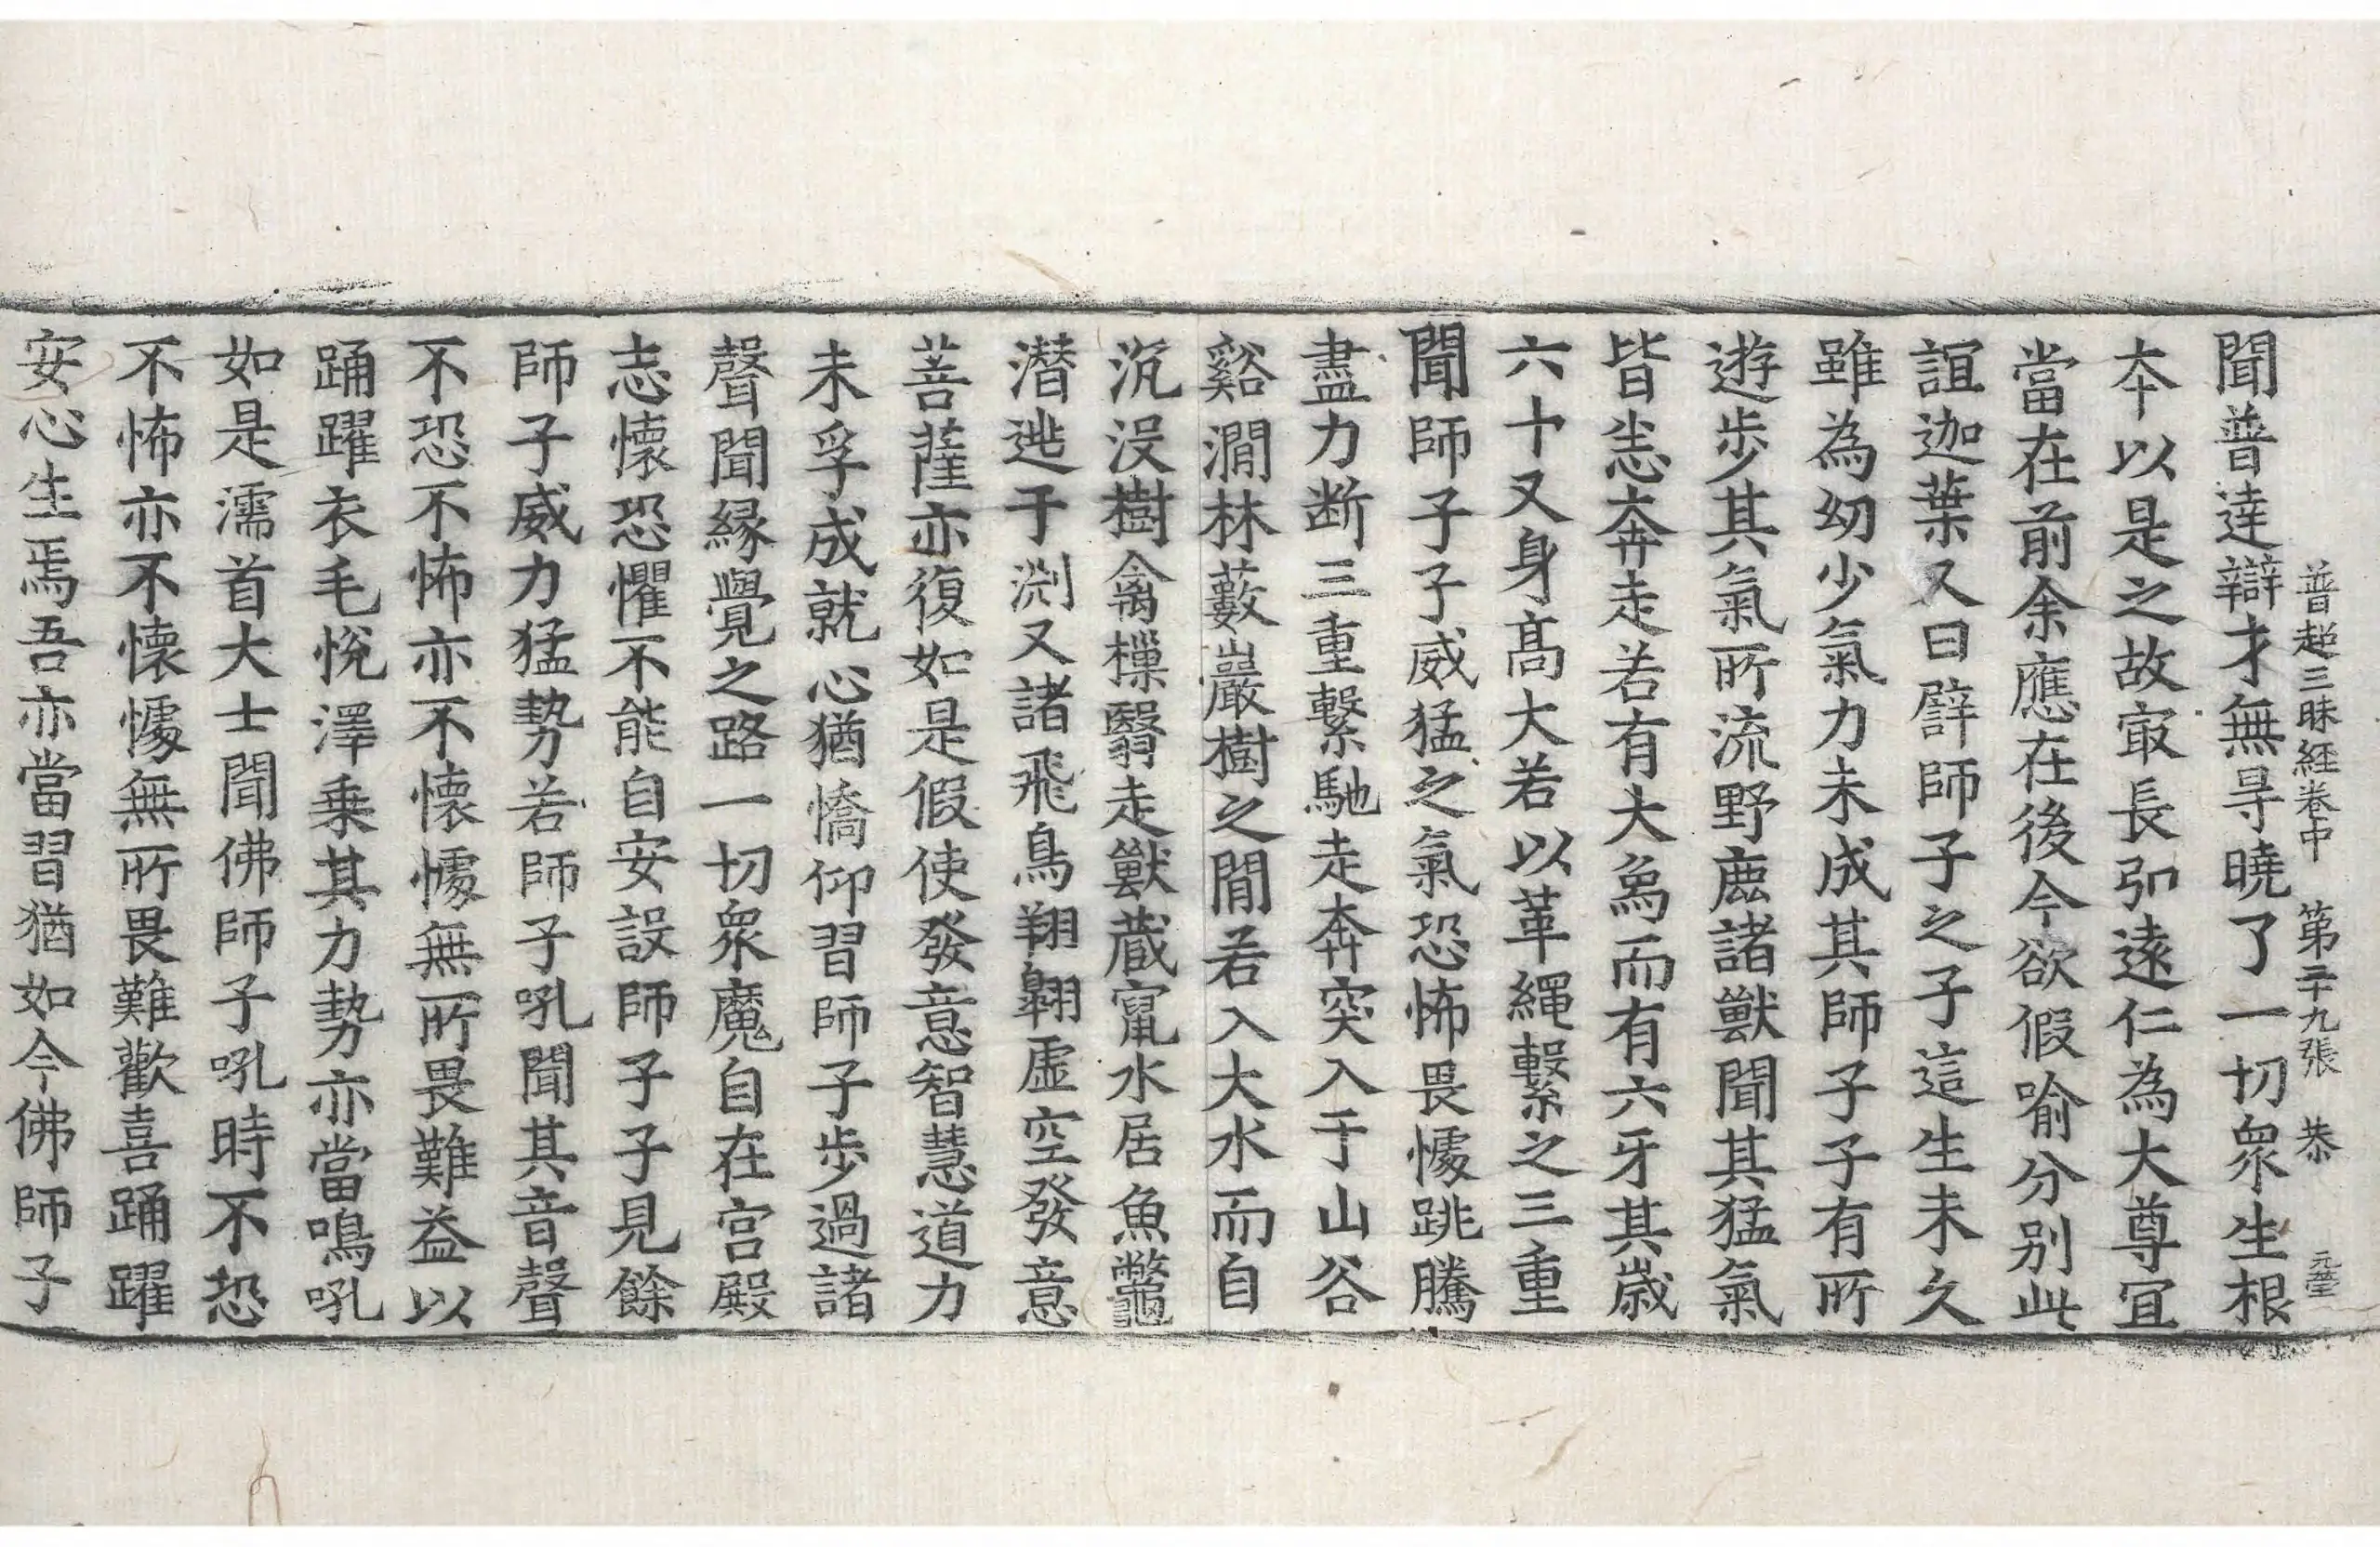 普超三昧経卷中 第二十九張 恭 元瑩
聞普達辯才無㝵曉了一切衆生根
夲以是之故㝡長弘遠仁為大尊冝
當在前余應在後今欲假喻分别此
誼迦葉又曰譬師子之子這生未久
雖為幼少氣力未成其師子子有所
遊步其氣所流野鹿諸獸聞其猛氣
皆悉奔走若有大象而有六牙其歳
六十又身髙大若以革繩繫之三重
聞師子子威猛之氣恐怖畏懅跳騰
盡力断三重繫馳走奔突入于山谷
谿㵎林藪巖樹之間若入大水而自
沉没樹禽樔翳走獸蔵竄水居魚鼈
潜逃于渕又諸飛鳥翔翺虚空發意
菩薩亦復如是假使發意智慧道力
未孚成就心猶憍仰習師子步過諸
聲聞縁覺之路一切衆魔自在宫殿
志懷恐懼不能自安設師子子見餘
師子威力猛勢若師子吼聞其音聲
不恐不怖亦不懷懅無所畏難益以
踊躍衣毛悅澤乗其力勢亦當鳴吼
如是濡首大士聞佛師子吼時不恐
不怖亦不懷懅無所畏難歡喜踊躍
安心生焉吾亦當習猶如今佛師子